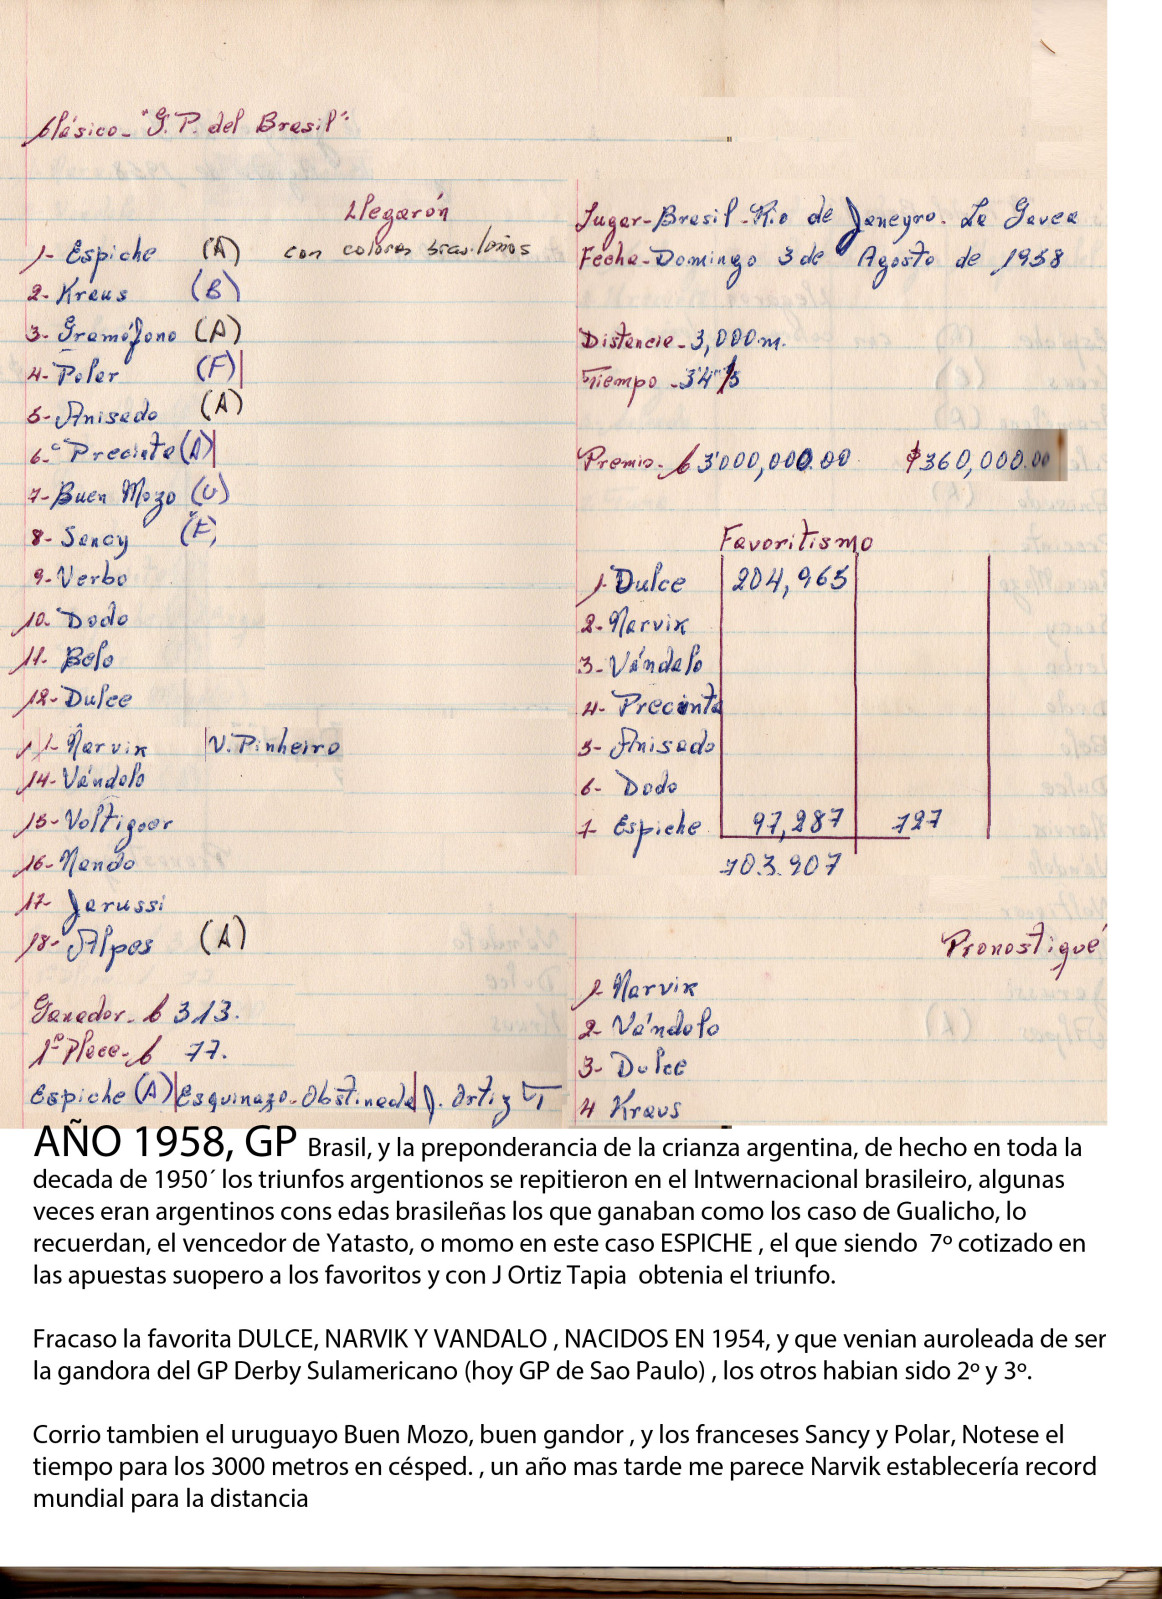 Clásico - "G. P. del Brasil".
Llegarón
1- Espiche (A) con colores brasileños
2- Kraus (B)
3- Gramófono (A)
4- Polar (F)
5- Anisado (A)
6- Precinta (A)
7- Buen Mozo (U)
8- Sancy (F)
9- Verbo
10- Dodo
11- Belo
12- Dulce
Narvik V. Pinheiro
14- Vándalo
15- Voltigoer
16- Nando
17- Jarussi
18- Alpes (A)
Ganador - 313.
1º Place - 77.
Espiche (A) Esquinazo - Obstinada J. Ortiz T
Lugar - Brasil - Rio de Janeyro - La Gavea
Fecha - Domingo 3 de Agosto de 1958
Distancia - 3,000 m.
Tiempo - 3'4"
Premio - 3'000,000.00 $360,000.00
Favoritismo
1- Dulce 204,965
2- Narvik
3- Vándalo
4- Precinta
5- Anisado
6- Dodo
7- Espiche 97,287 727
703.907
Pronostiqué
1- Narvik
2- Vándalo
3- Dulce
4 Kraus
AÑO 1958, GP Brasil, y la preponderancia de la crianza argentina, de hecho en toda la
decada de 1950´ los triunfos argentionos se repitieron en el Intwernacional brasileiro, algunas
veces eran argentinos cons edas brasileñas los que ganaban como los caso de Gualicho, lo
recuerdan, el vencedor de Yatasto, o momo en este caso ESPICHE , el que siendo 7º cotizado en
las apuestas suopero a los favoritos y con J Ortiz Tapia obtenia el triunfo.
Fracaso la favorita DULCE, NARVIK Y VANDALO , NACIDOS EN 1954, y que venian auroleada de ser
la gandora del GP Derby Sulamericano (hoy GP de Sao Paulo) , los otros habian sido 2º y 3º.
Corrio tambien el uruguayo Buen Mozo, buen gandor , y los franceses Sancy y Polar, Notese el
tiempo para los 3000 metros en césped. , un año mas tarde me parece Narvik establecería record
mundial para la distancia